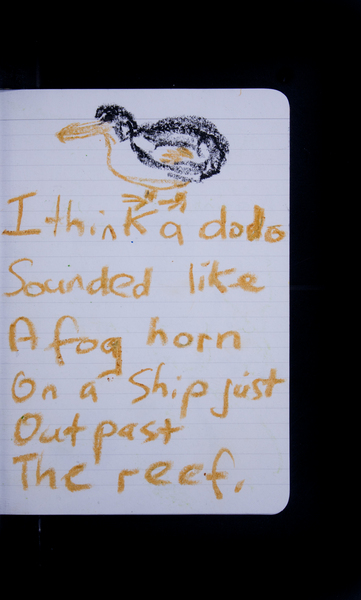 I think a dodo
Sounded like
A fog horn
On a Ship just
Out past
The reef.